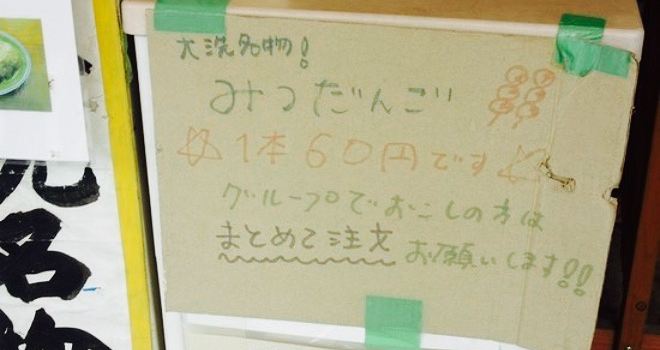 大洗名物!
みつだんご
☆1本60円です☆
グループでおこしの方は
まとめて注文お願いします!!
洗名物